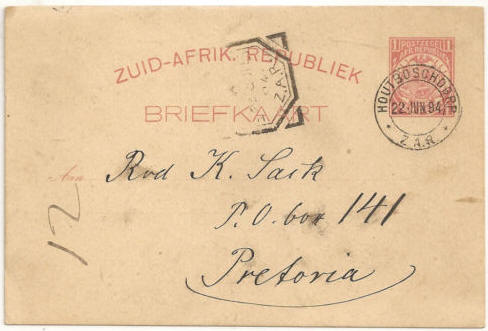 ZUID-AFRIK. REPUBLIEK
BRIEFKAART
1 POSTZEGEL 1
Z.A.R.
HOUTBOSCHDORP
22 JUN 94
Z.A.R.
Aan
Rvd K. Sack
P.O. box 141
Pretoria
12